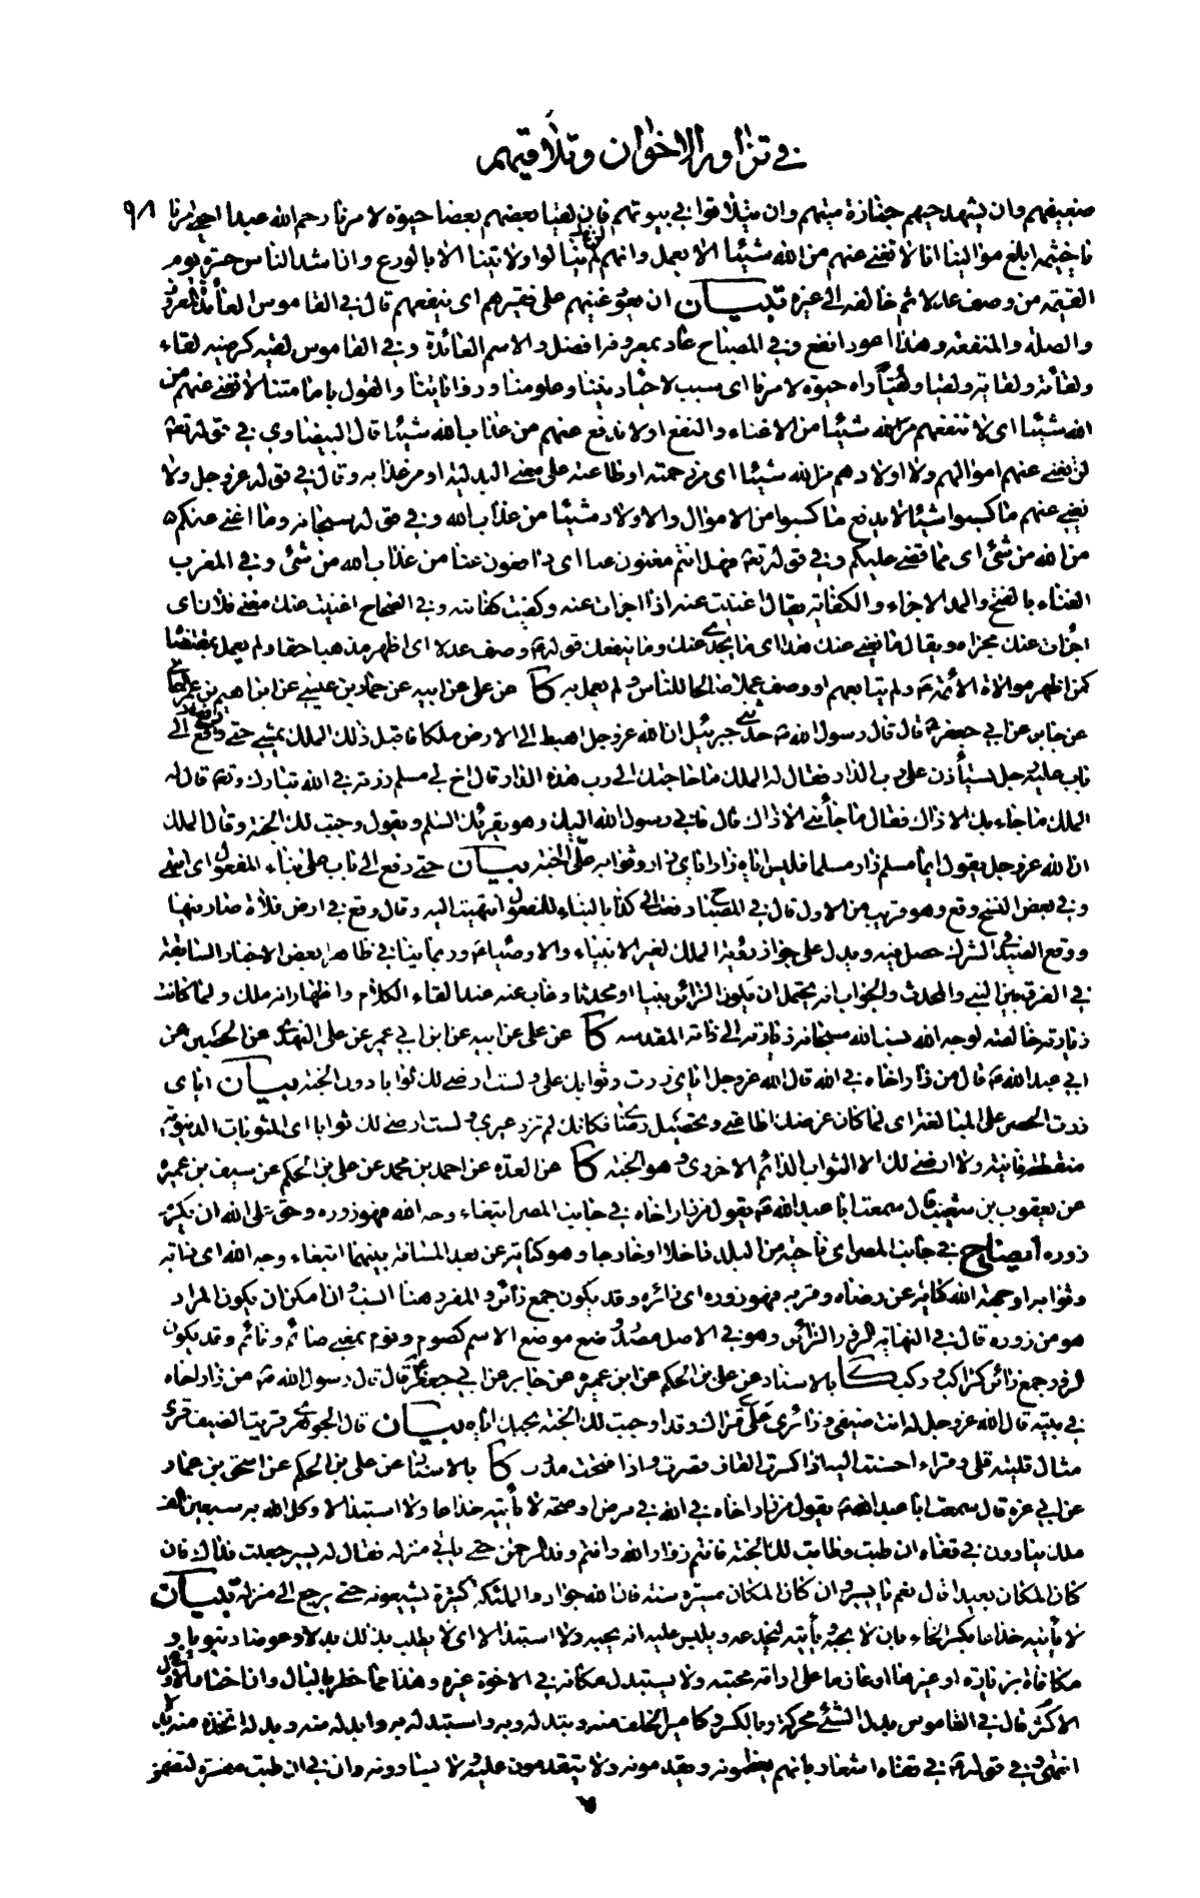 في تزاور الاخوان وتلاقيهم
ضعيفهم وان يشهد حيهم جنازة ميتهم وان يتلاقوا في بيوتهم فان لقيا بعضهم بعضا حيوة لامرنا رحم الله عبدا احيى امرنا ٩٨
يا خيثمة ابلغ موالينا انا لا نغني عنهم من الله شيئا الا بعمل وانهم لن ينالوا ولايتنا الا بالورع وان اشد الناس حسرة يوم
القيمة من وصف عدلا ثم خالفه الى غيره تبيان ان يعود غنيهم على فقيرهم اي ينفعهم قال في القاموس العائدة المعروف
والصلة والمنفعة وهذا اعود انفع وفي المصباح عاد بمعروفه افضل والاسم العائدة وفي القاموس لقيه كرضيه لقاء
ولقاءة ولقاية ولقيا ولقيا رآه حيوة لامرنا اي سبب لاحياء ديننا وعلومنا ورواياتنا والقول بامامتنا لا نغني عنهم من
الله شيئا اي لا ننفعهم من الله شيئا من الاغناء والنفع او لا ندفع عنهم من عذاب الله شيئا قال البيضاوي في قوله تعالى
لن تغني عنهم اموالهم ولا اولادهم من الله شيئا اي من رحمته او طاعته على معنى البدلية او من عذابه وقال في قوله عز وجل ولا
يغني عنهم ما كسبوا شيئا لا يدفع ما كسبوا من الاموال والاولاد شيئا من عذاب الله وفي قوله سبحانه وما اغني عنكم
من الله من شئ اي مما قضى عليكم وفي قوله تعه فهل انتم مغنون عنا اي دافعون عنا من عذاب الله من شئ وفي المغرب
الغناء بالفتح والمد الاجزاء والكفاية يقال اغنيت عنه اذا اجزات عنه وكفيت كفايته وفي الصحاح اغنيت عنك مغنى فلان اي
اجزات عنك مجزاه ويقال ما يغني عنك هذا اي ما يجدي عنك وما ينفعك قوله ع وصف عدلا اي اظهر مذهبا حقا ولم يعمل بمقتضاه
كمن اظهر موالاة الائمة ع ولم يتابعهم او وصف عملا صالحا للناس ولم يعمل به كا عن علي عن ابيه عن حماد بن عيسى عن ابراهيم بن عمر اليماني
عن جابر عن ابي جعفر ع قال قال رسول الله ص حدثني جبرئيل ان الله عز وجل اهبط الى الارض ملكا فاقبل ذلك الملك يمشي حتى دفع الى
باب عليه رجل يستأذن على رب الدار فقال له الملك ما حاجتك الى رب هذه الدار قال اخ لي مسلم زرته في الله تبارك وتعه قال له
الملك ما جاء بك الا ذاك فقال ما جاءني الا ذاك قال فاني رسول الله اليك وهو يقرئك السلم ويقول وجبت لك الجنة وقال الملك
ان الله عز وجل يقول ايما مسلم زار مسلما فليس اياه زار اياي زار وثوابه علي الجنة بيان حتى دفع الى باب على بناء المفعول اي انتهى
وفي بعض النسخ وقع وهو قريب من الاول قال في المصباح دفعت الى كذا بالبناء للمفعول انتهيت اليه وقال وقع في ارض فلاة صار فيها
ووقع الصيد في الشرك حصل فيه ويدل على جواز رؤية الملك لغير الانبياء والاوصياء ع وربما ينافي ظاهر بعض الاخبار السابقة
في الفرق بين النبي والمحدث والجواب انه يحتمل ان يكون الزائر نبيا او محدثا وغاب عنه عند القاء الكلام واظهار انه ملك ولما كانت
زيارته خالصة لوجه الله نسب الله سبحانه زيارته الى ذاته المقدسة كا عن علي عن ابيه عن ابن ابي عمير عن علي النهدي عن الحصين عن
ابي عبد الله ع قال من زار اخاه في الله قال الله عز وجل اياي زرت وثوابك علي ولست ارضى لك ثوابا دون الجنة بيان اياي
زرت الحصر على المبالغة اي لما كان غرضك اطاعتي وتحصيل رضاي فكانك لم تزر غيري ولست ارضى لك ثوابا اي المثوبات الدنيوية
منقطعة فانية ولا ارضى لك الا الثواب الدائم الاخروي وهو الجنة كا عن العدة عن احمد بن محمد عن علي بن الحكم عن سيف بن عميرة
عن يعقوب بن شعيب قال سمعت ابا عبد الله ع يقول من زار اخاه في جانب المصر ابتغاء وجه الله فهو زوره وحق على الله ان يكرم
زوره ايضاح في جانب المصر اي ناحية من البلد داخلا او خارجا وهو كناية عن بعد المسافة بينهما ابتغاء وجه الله اي ذاته
وثوابه او جهة الله كناية عن رضاه وقربه فهو زوره اي زائره وقد يكون جمع زائر والمفرد هنا انسب وان امكن ان يكون المراد
هو من زوره قال في النهاية الزور الزائر وهو في الاصل مصدر وضع موضع الاسم كصوم ونوم بمعنى صائم ونائم وقد يكون
الزور جمع زائر كراكب وركب كا بالاسناد عن علي بن الحكم عن ابن عميرة عن جابر عن ابي جعفر ع قال قال رسول الله ص من زار اخاه
في بيته قال الله عز وجل له انت ضيفي وزائري علي قراك وقد اوجبت لك الجنة بحبك اياه بيان قال الجوهري قريت الضيف قرى
مثال قليته قلى وقراء احسنت اليه اذا كسرت القاف قصرت واذا فتحت مددت كا بالاسناد عن علي بن الحكم عن اسحق بن عمار
عن ابي غرة قال سمعت ابا عبد الله ع يقول من زار اخاه في الله في مرض او صحة لا يأتيه خداعا ولا استبدالا وكل الله به سبعين الف
ملك ينادون في قفاه ان طبت وطابت لك الجنة فانتم زوار الله وانتم وفد الرحمن حتى ياتي منزله فقال له يسير جعلت فداك فان
كان المكان بعيدا قال نعم يا يسير وان كان المكان مسيرة سنة فان الله جواد والملئكة كثيرة يشيعونه حتى يرجع الى منزله تبيان
لا يأتيه خداعا بكسر الخاء بان لا يحبه ويأتيه ليخدعه ويلبس عليه انه يحبه ولا استبدالا اي لا يطلب بذلك بدلا وعوضا دنيويا و
مكافاة بزيارة او غيرها او عازما على ادامة محبته ولا يستبدل مكانه في الاخوة غيره وهذا مما خطر بالبال وان اختار الاول
الاكثر قال في القاموس بدل الشئ محركة وبالكسر وكامير الخلف منه وتبدله وبه واستبدله وبه وابدله منه وبدله اتخذه منه بدلا
انتهى وفي قوله ع في قفاه اشعار بانهم يعظمونه ويقدمونه ولا يتقدمون عليه ولا يساوونه وان في ان طبت مفسرة لتضمن